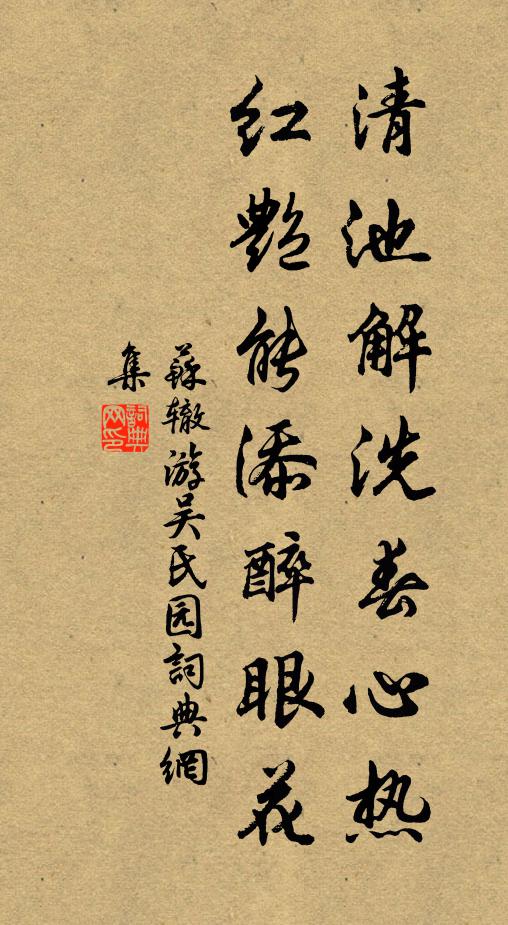 清池解洗春心热
红艳能添醉眼花
蘇辙游吴民园詞典網
集
詞典
网印